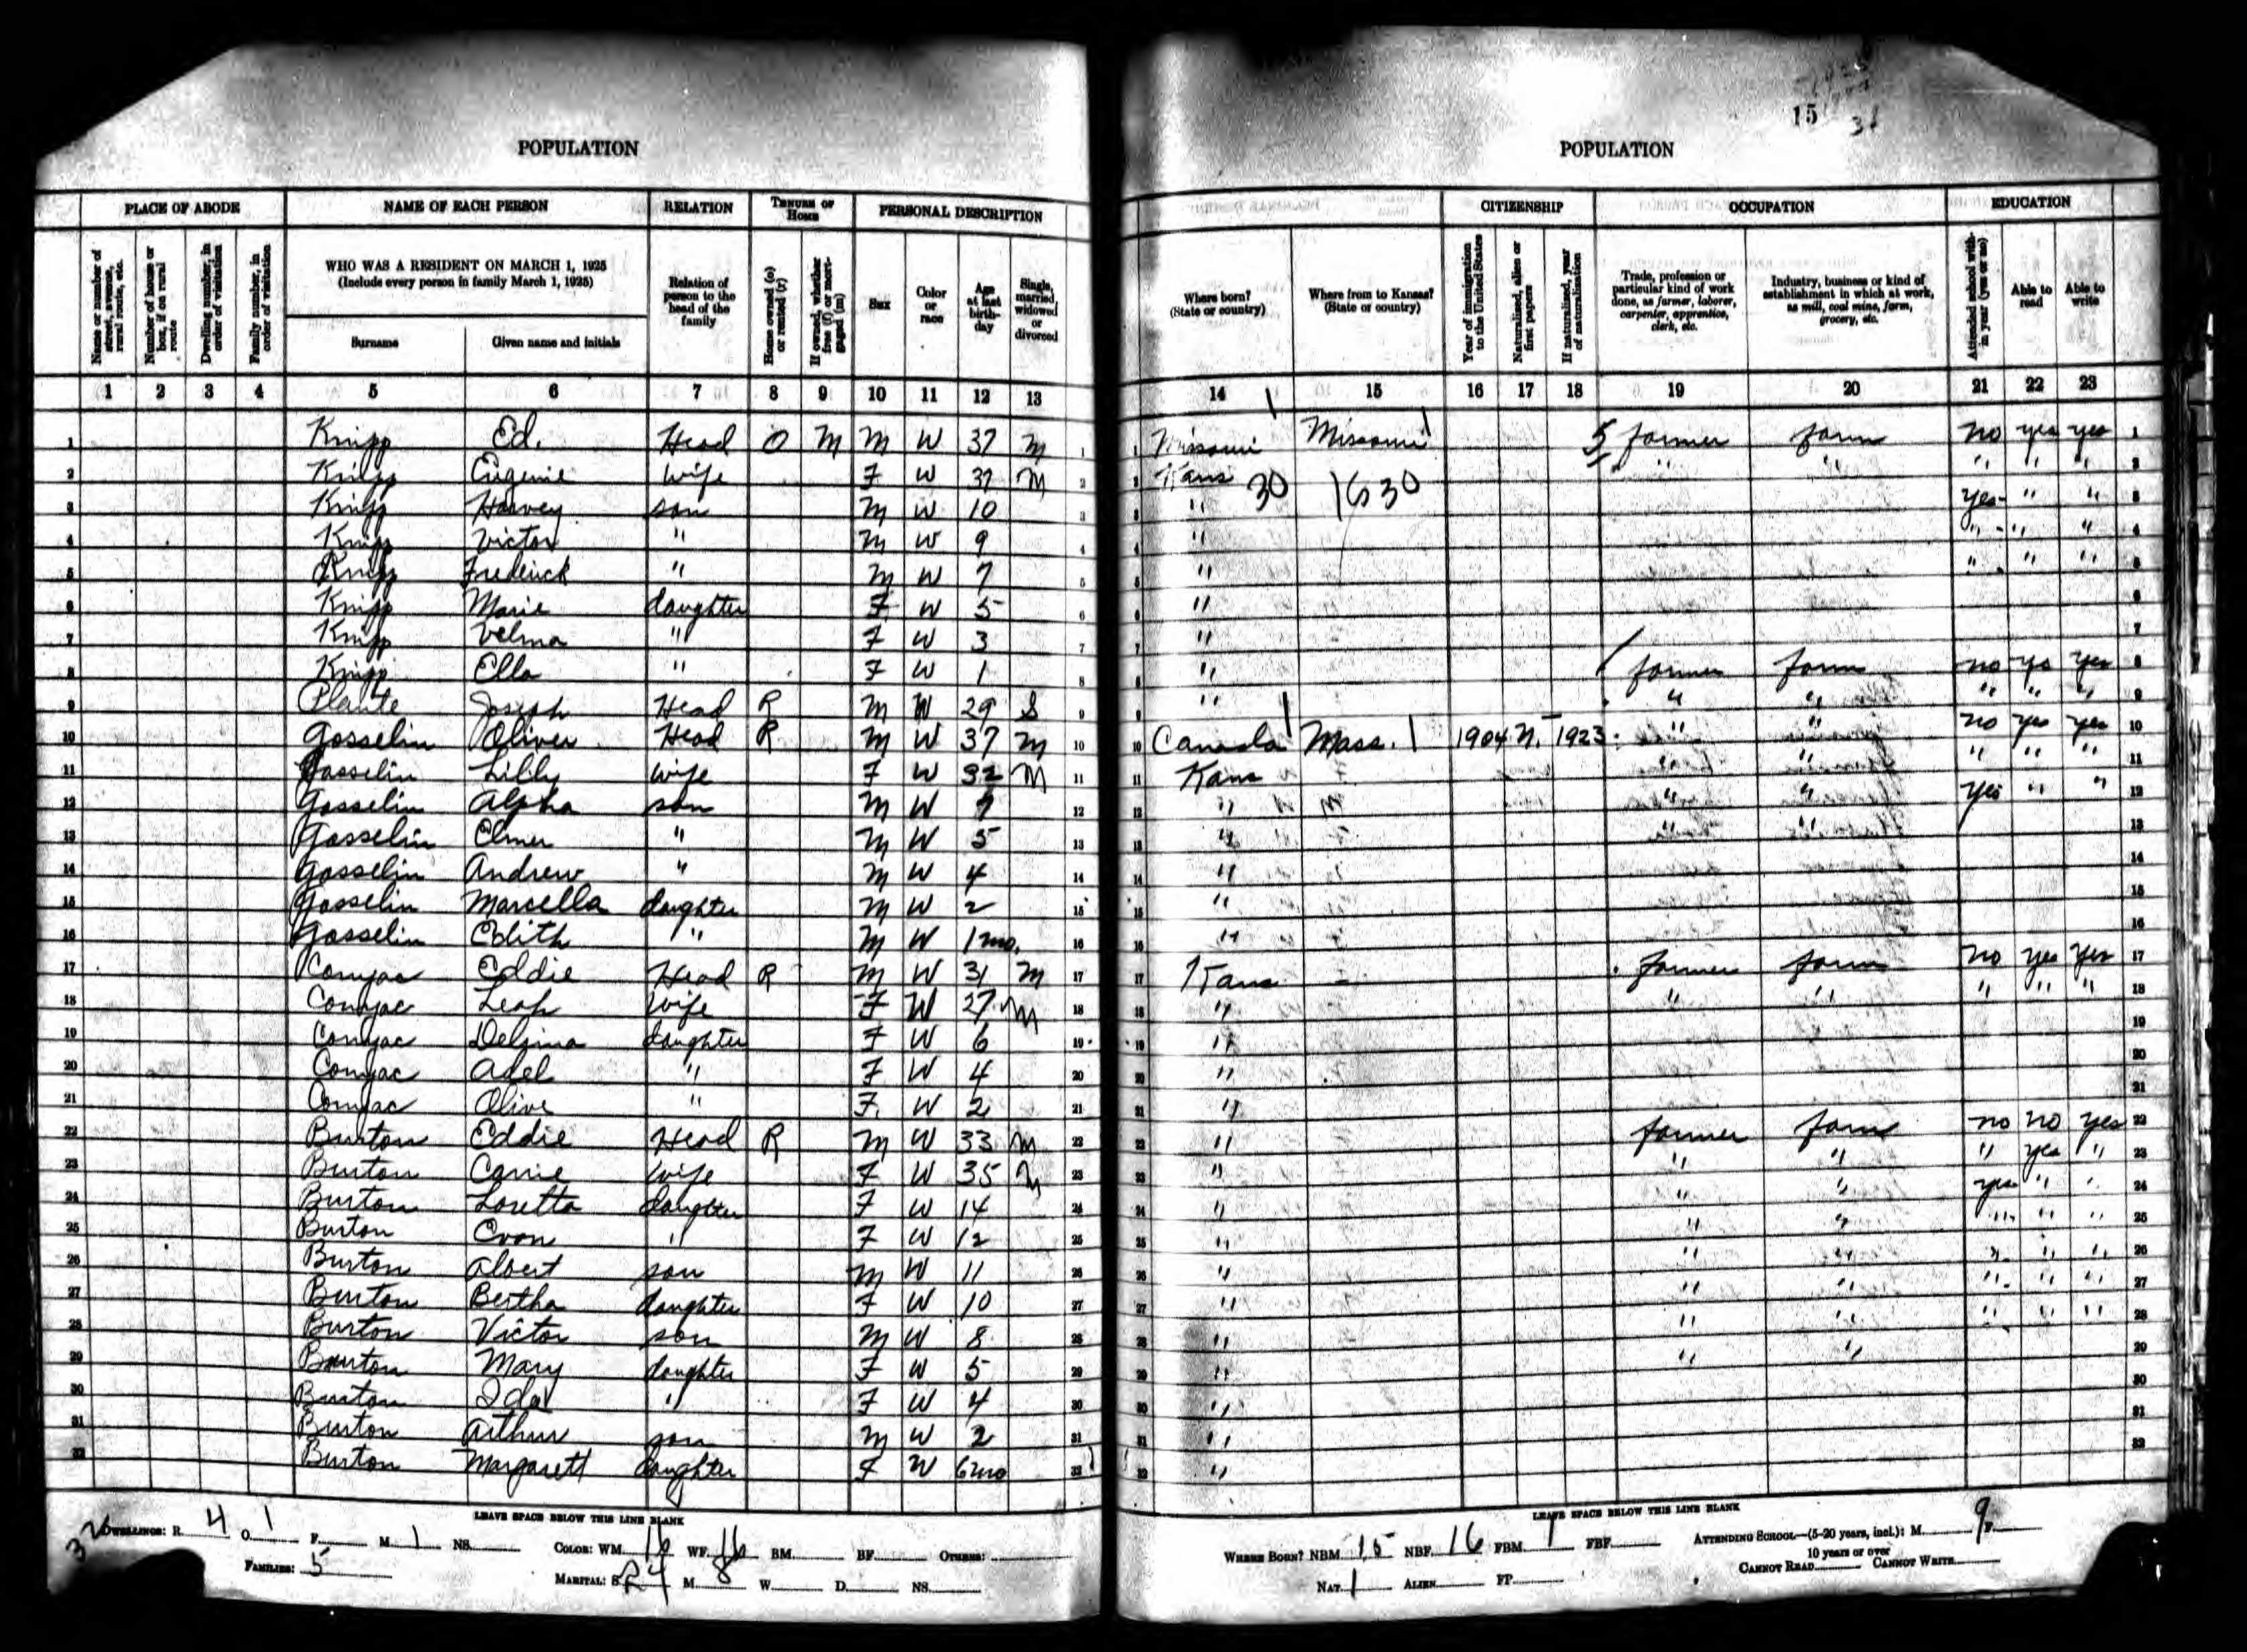 15
31
POPULATION
POPULATION
PLACE OF ABODE NAME OF EACH PERSON RELATION TENURE OF HOME PERSONAL DESCRIPTION
Name or number of street, avenue, rural route, etc.
Number of house or box, if on rural route
Dwelling number, in order of visitation
Family number, in order of visitation
WHO WAS A RESIDENT ON MARCH 1, 1925
(Include every person in family March 1, 1925)
Surname Given name and initials
Relation of person to the head of the family
Home owned (o) or rented (r)
If owned, whether free (f) or mortgaged (m)
Sex
Color or race
Age at last birthday
Single, married, widowed or divorced
1 2 3 4 5 6 7 8 9 10 11 12 13
1 Knipp Ed. Head O M M W 37 M 1
2 Knipp Eugenie wife F W 37 M 2
3 Knipp Harvey son M W 10 3
4 Knipp Victor " M W 9 4
5 Knipp Frederick " M W 7 5
6 Knipp Marie daughter F W 5 6
7 Knipp Velma " F W 3 7
8 Knipp Ella " F W 1 8
9 Plante Joseph Head R M W 29 S 9
10 Gosselin Oliver Head R M W 37 M 10
11 Gosselin Lilly wife F W 32 M 11
12 Gosselin Alpha son M W 7 12
13 Gosselin Elmer " M W 5 13
14 Gosselin Andrew " M W 4 14
15 Gosselin Marcella daughter M W 2 15
16 Gosselin Edith " M W 1 mo. 16
17 Comjac Eddie Head R M W 31 M 17
18 Comjac Leah wife F W 27 M 18
19 Comjac Delsina daughter F W 6 19
20 Comjac Adel " F W 4 20
21 Comjac Olive " F W 2 21
22 Burton Eddie Head R M W 33 M 22
23 Burton Carrie wife F W 35 M 23
24 Burton Loretta daughter F W 14 24
25 Burton Evon " F W 12 25
26 Burton Albert son M W 11 26
27 Burton Bertha daughter F W 10 27
28 Burton Victor son M W 8 28
29 Burton Mary daughter F W 5 29
30 Burton Ida " F W 4 30
31 Burton Arthur son M W 2 31
32 Burton Margarett daughter F W 6 mo 32
LEAVE SPACE BELOW THIS LINE BLANK
32 DWELLINGS: R. 4 O. 1 F. M. 1 NS. COLOR: WM. 16 WF. 16 BM. BF. OTHERS:
FAMILIES: 5 MARITAL: S. 24 M. 8 W. D. NS.
CITIZENSHIP OCCUPATION EDUCATION
Where born? (State or country)
Where from to Kansas? (State or country)
Year of immigration to the United States
Naturalized, alien or first papers
If naturalized, year of naturalization
Trade, profession or particular kind of work done, as farmer, laborer, carpenter, apprentice, clerk, etc.
Industry, business or kind of establishment in which at work, as mill, coal mine, farm, grocery, etc.
Attended school within year (yes or no)
Able to read
Able to write
14 15 16 17 18 19 20 21 22 23
1 Missouri Missouri 5 farmer farm no yes yes 1
2 Kans 30 1630 " " " " " 2
3 " yes " " 3
4 " " " " 4
5 " " " " 5
6 " 6
7 " 7
8 " farmer farm no yes yes 8
9 " " " " " " 9
10 Canada Mass. 1904 N. 1923 " " no yes yes 10
11 Kans " " " " " 11
12 " " " yes " " 12
13 " " " 13
14 " 14
15 " 15
16 " 16
17 Kans - farmer farm no yes yes 17
18 " " " " " " 18
19 " 19
20 " 20
21 " 21
22 " farmer farm no no yes 22
23 " " " " yes " 23
24 " " " yes " " 24
25 " " " " " " 25
26 " " " " " " 26
27 " " " " " " 27
28 " " " " " " 28
29 " " " 29
30 " 30
31 " 31
32 " 32
LEAVE SPACE BELOW THIS LINE BLANK
WHERE BORN? NBM. 15 NBF. 16 FBM. 1 FBF. ATTENDING SCHOOL—(5-20 years, incl.): M. 9 F.
10 years or over
NAT. 1 ALIEN FP. CANNOT READ CANNOT WRITE